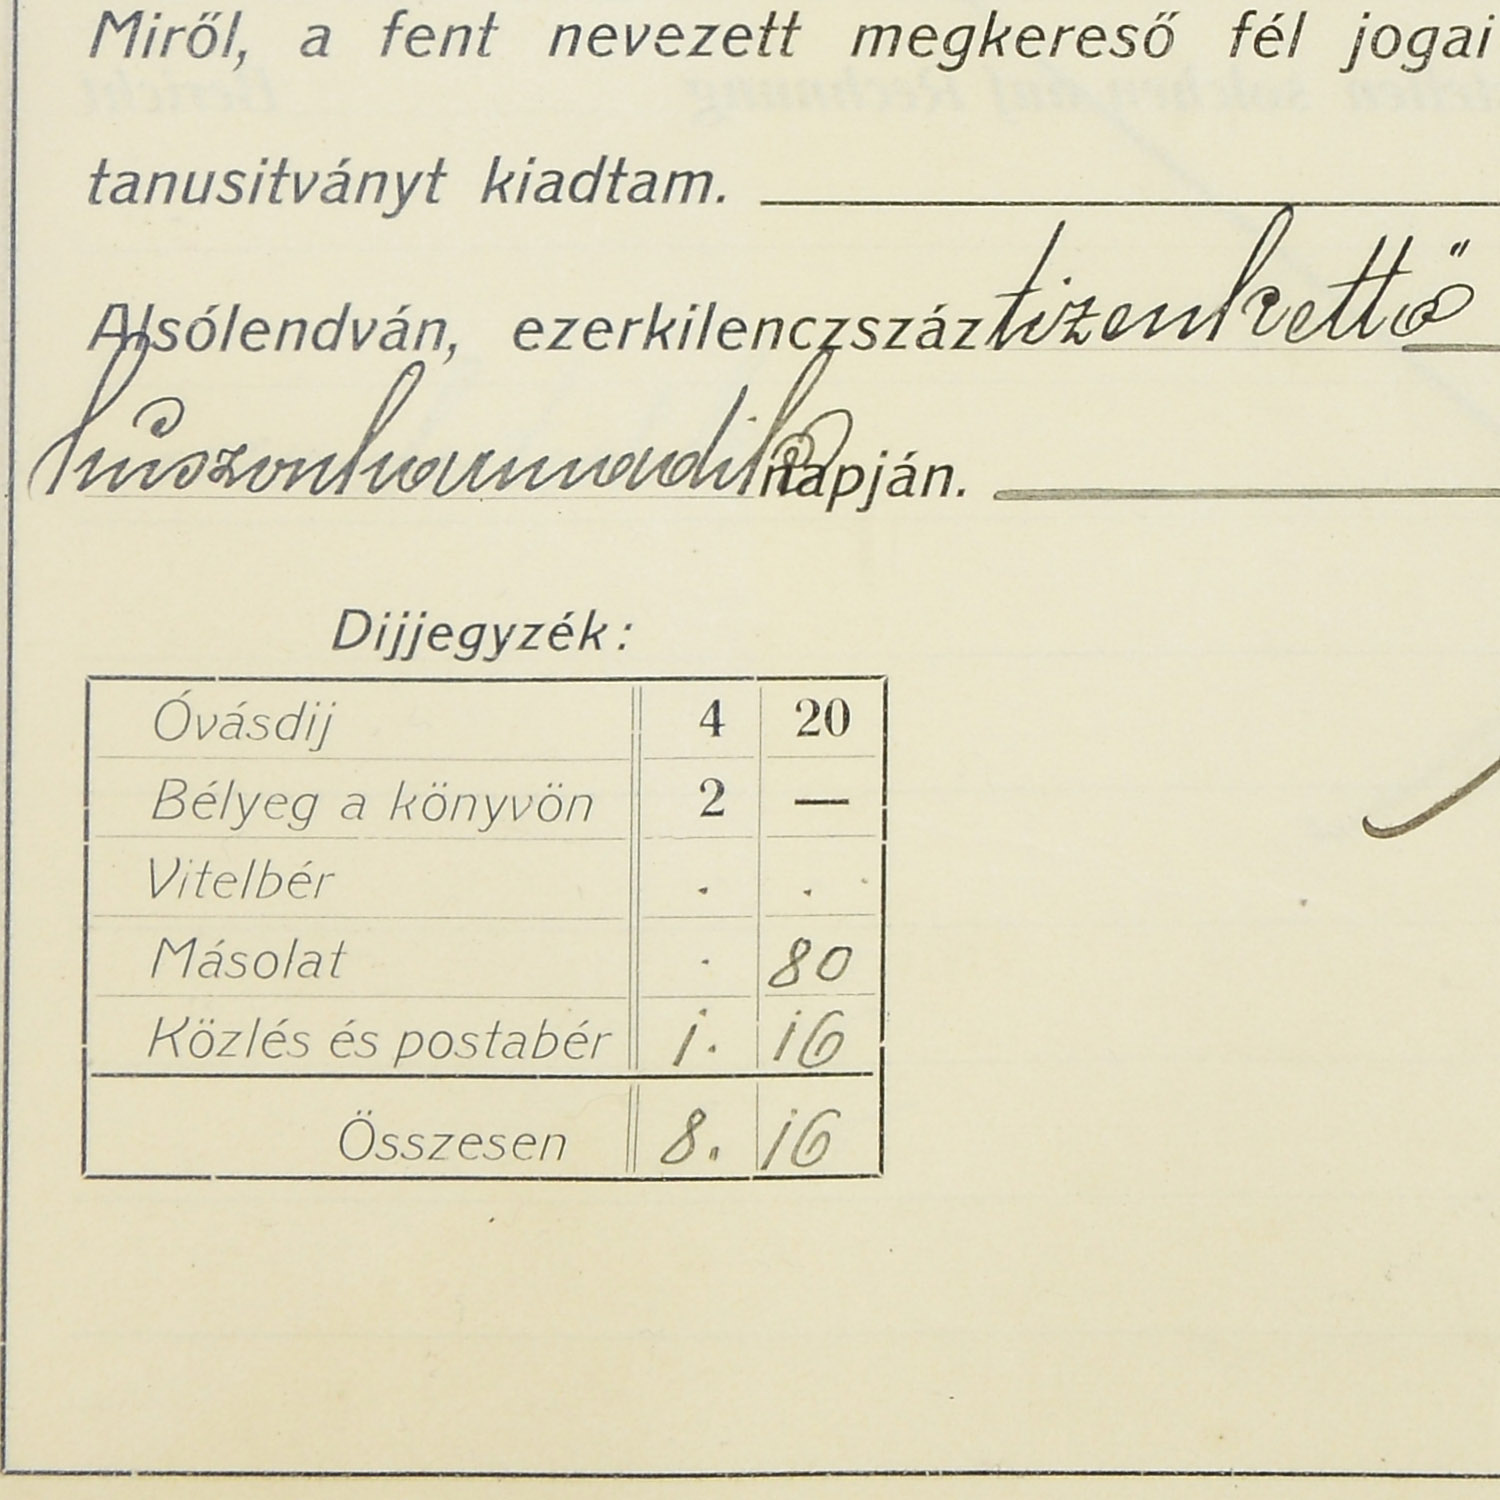 Miről, a fent nevezett megkereső fél jogai
tanusitványt kiadtam.
Alsólendván, ezerkilenczszáztizenkettő
huszonharmadik napján.
Dijjegyzék:
Óvásdij 4 20
Bélyeg a könyvön 2 —
Vitelbér . .
Másolat . 80
Közlés és postabér 1. 16
Összesen 8. 16